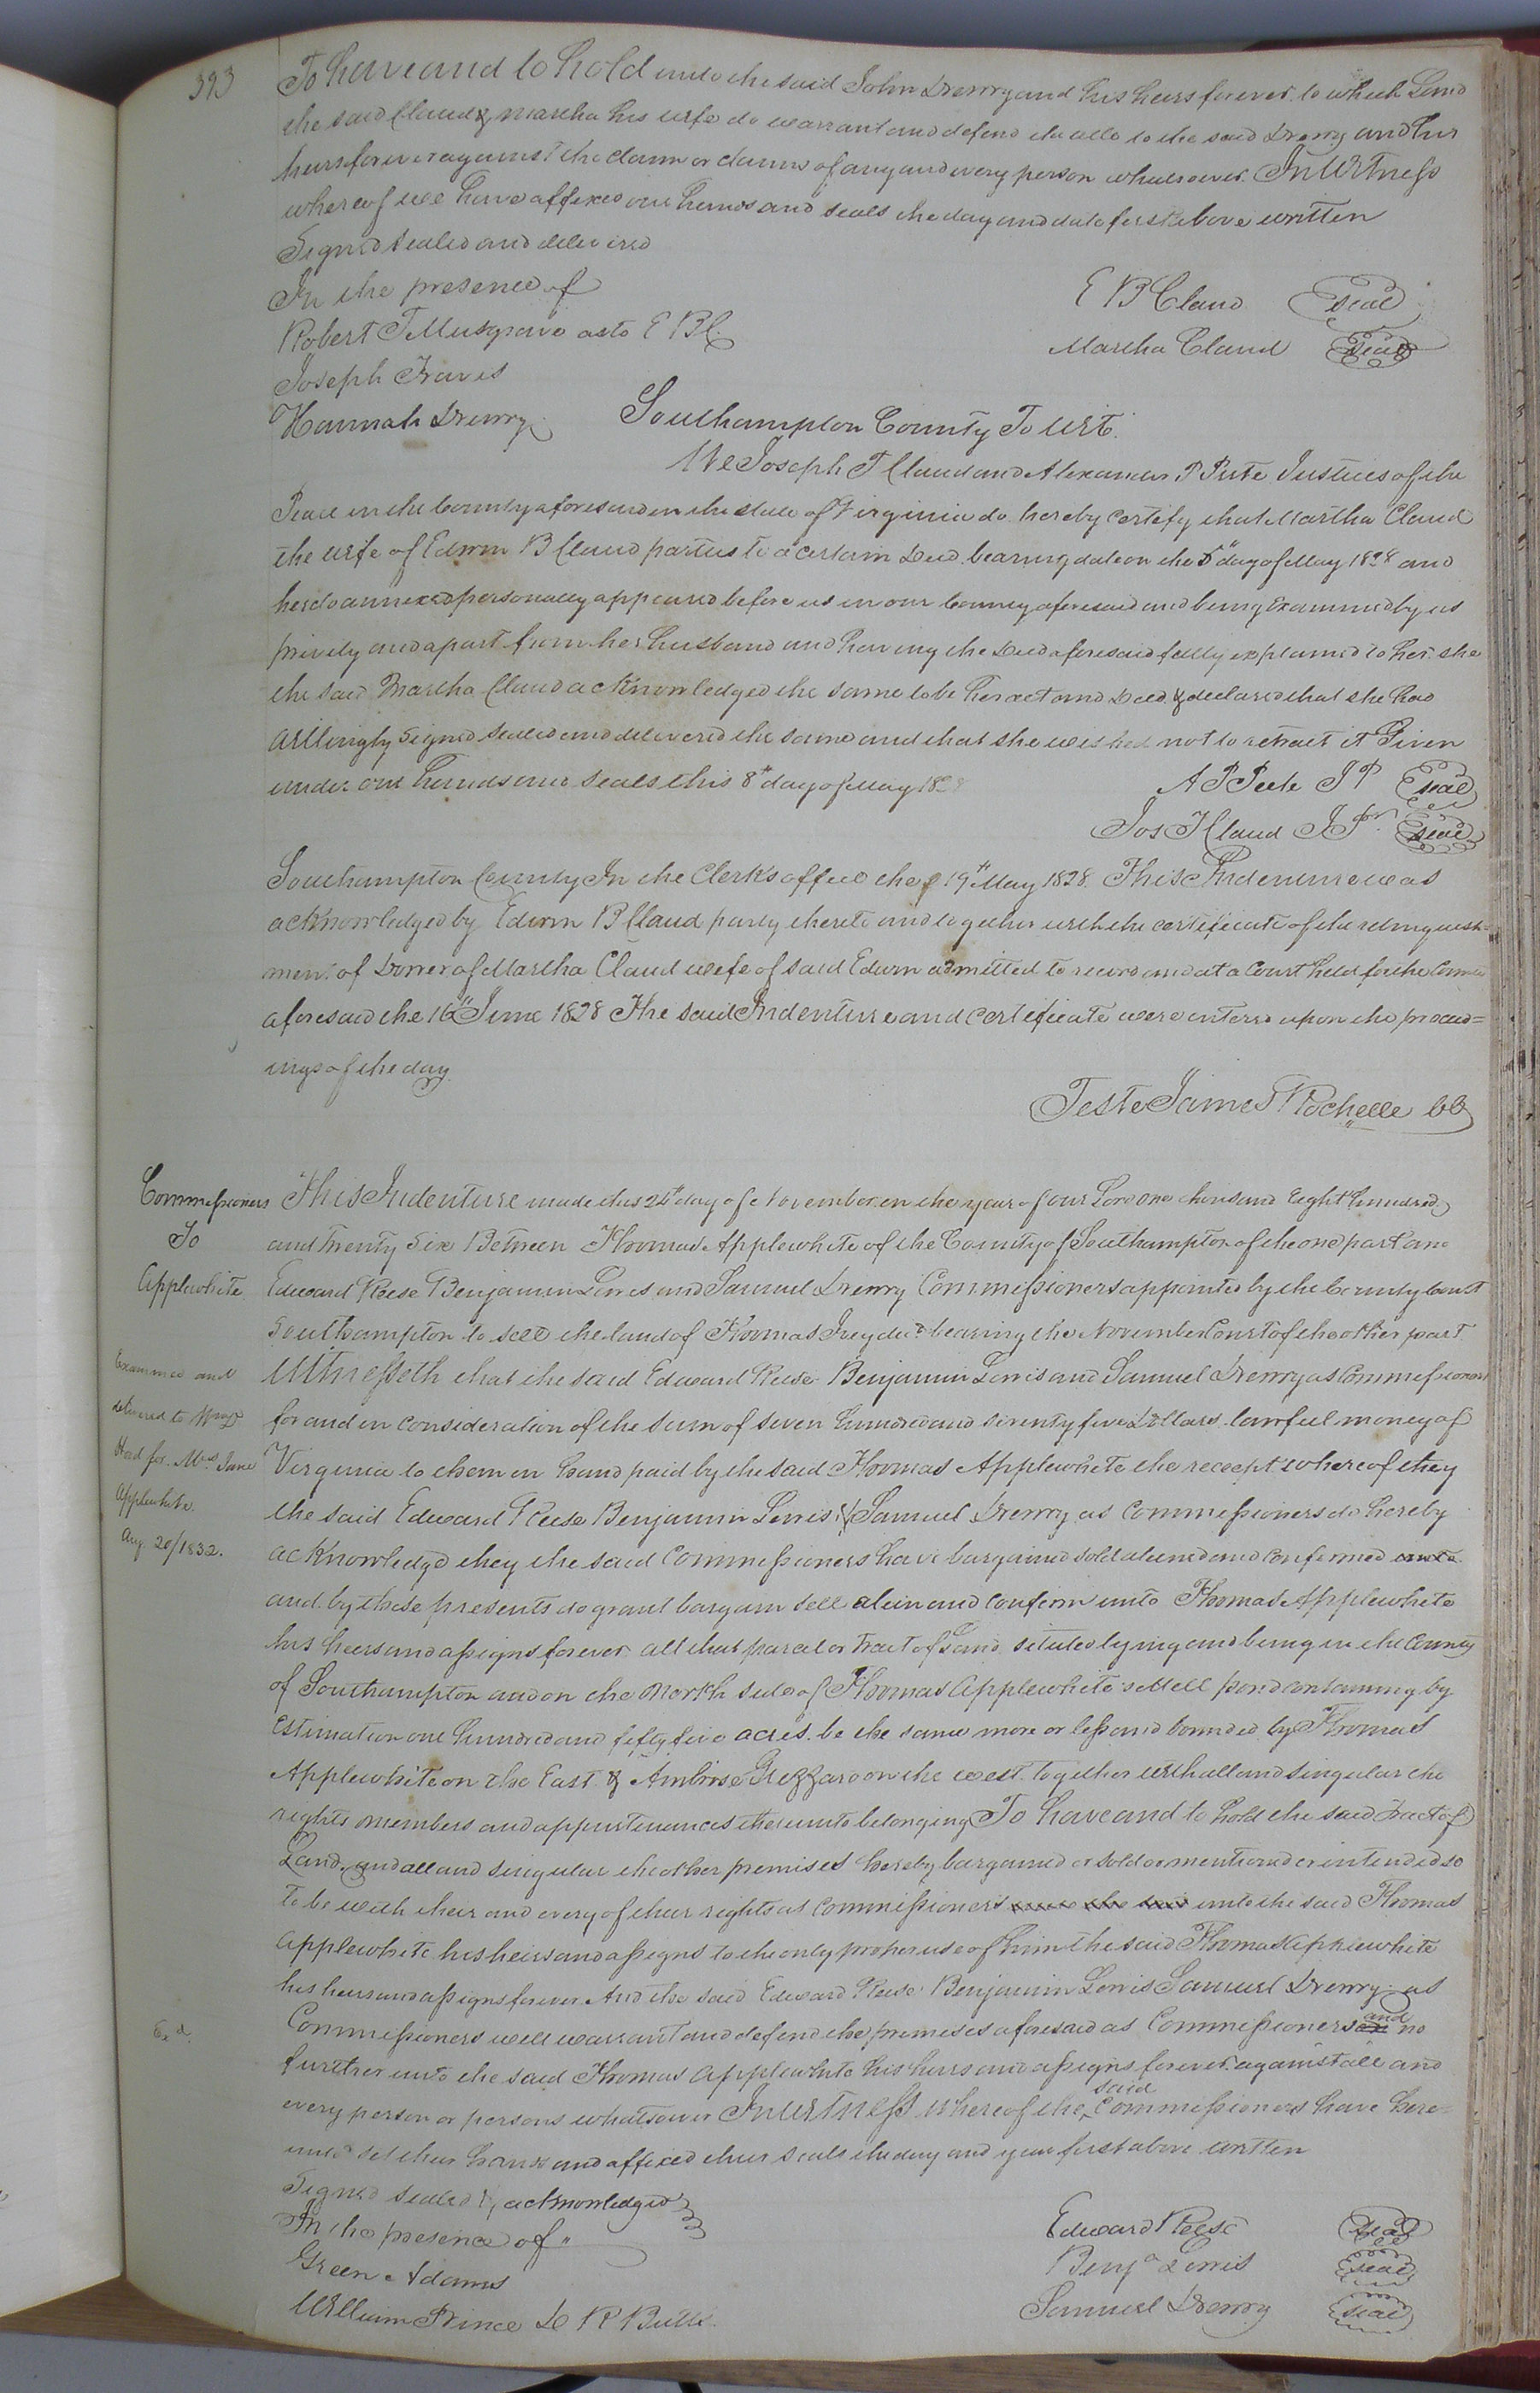 393
To have and to hold unto the said John Drewry and his heirs forever to which Land
the said Claud & Martha his wife do warrant and defend the  to the said Drewry and his
heirs forever against the claim or claims of any and every person whatsoever. In Witness
whereof we have affixed our hands and seals the day and date first above written
Signed Sealed and delivered
In the presence of
E B Claud seal
Robert T Musgrave as to E B C.
Martha Claud seal
Joseph Travis
Hannah Drewry
Southampton County To wit.
We Joseph T Claud and Alexander P Peete Justices of the
Peace in the County aforesaid in the state of Virginia do hereby certify that Martha Claud
the wife of Edwin B Claud parties to a certain Deed bearing date on the day of May 1828 and
hereto annexed personally appeared before us in our County aforesaid and being Examined by us
privily and apart from her husband and having the Deed aforesaid fully explained to her she
the said Martha Claud acknowledged the same to be her act and Deed & declared that she had
willingly Signed Sealed and delivered the same and that she wished not to retract it Given
under our hands and seals this 8th day of May 1828
A P Peete J P seal
Jos T Claud J P seal
Southampton County In the Clerks office the 19th May 1828. This Indenture was
acknowledged by Edwin B Claud party thereto and together with the certificate of the relinquish=
ment of Dower of Martha Claud wife of said Edwin admitted to record and at a Court held for the County
aforesaid the 16th June 1828 The said Indenture and certificate were entered upon the proceed=
ings of the day.
Teste James Rochelle CC
Commissioners
To
Applewhite
Examined and
delivered to
Hood for Mrs Jane
Applewhite.
Aug. 20/1832.
This Indenture made this day of November in the year of our Lord one thousand Eight hundred
and Twenty Six Between Thomas Applewhite of the County of Southampton of the one part and
Edward Reese Benjamin Lewis and Samuel Drewry Commissioners appointed by the County Court
Southampton to sell the land of Thomas Ivey decd bearing the November Court of the other part
Witnesseth that the said Edward Reese Benjamin Lewis and Samuel Drewry as Commissioners
for and in consideration of the sum of seven hundred and seventy five Dollars lawful money of
Virginia to them in hand paid by the said Thomas Applewhite the receept whereof they
the said Edward Reese Benjamin Lewis & Samuel Drewry as Commissioners do hereby
acknowledge they the said Commissioners have bargained sold aliened and confirmed
and by these presents do grant bargain sell alein and confirm unto Thomas Applewhite
his heirs and assigns forever all that parcel or Tract of Land situted lying and being in the County
of Southampton and on the North side of Thomas Applewhite's Mill pond containing by
Estimation one hundred and fifty five acres be the same more or less and bounded by Thomas
Applewhite on the East & Ambrose Grizzard on the west together with all and singular the
rights members and appurtenances thereunto belonging To have and to hold the said Tract of
Land, and all and singular the other premises hereby bargained or sold or mentioned or intended so
to be with their and every of their rights as Commissioners unto the said Thomas
Applewhite his heirs and assigns to the only proper use of him the said Thomas Applewhite
his heirs and assigns forever And the said Edward Reese Benjamin Lewis Samuel Drewry as
Commissioners will warrant and defend the premises aforesaid as Commissioners and no
further unto the said Thomas Applewhite his heirs and assigns forever against all and
every person or persons whatsoever In Witness whereof the said Commissioners have here=
unto set their hands and affixed their seals the day and year first above written
Signed sealed & acknowledged
In the presence of
Edward Reese seal
Green Adams
Benja Lewis seal
William Prince
Samuel Drewry seal